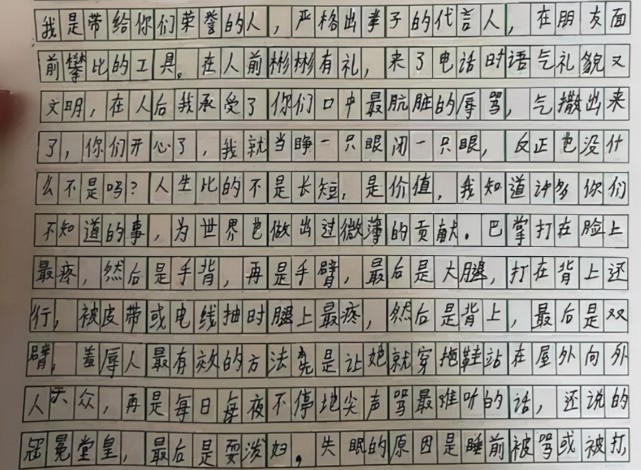 我是带给你们荣誉的人，严格出事子的代言人，在朋友面
前攀比的工具。在人前彬彬有礼，来了电话时语气礼貌又
文明，在人后我承受了你们口中最肮脏的辱骂，气撒出来
了，你们开心了，我就当睁一只眼闭一只眼，反正也没什
么不是吗？人生比的不是长短，是价值，我知道许多你们
不知道的事，为世界也做出过微薄的贡献。巴掌打在脸上
最疼，然后是手背，再是手臂，最后是大腿，打在背上还
行，被皮带或电线抽时腿上最疼，然后是背上，最后是双
臂，羞辱人最有效的方法竟是让她就穿拖鞋站在屋外向外
人示众，再是每日每夜不停地尖声骂最难听的话，还说的
冠冕堂皇，最后是耍泼妇。失眠的原因是睡前被骂或被打，